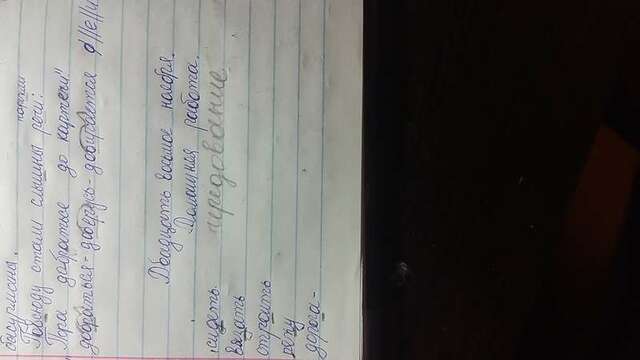 бысурманы.
пораги
Повсюду стали слышны речи:
"Пора добраться до картечи"
добраться - доберусь - добирается ø//е//и
Двадцать восьмое ноября.
Домашняя работа.
сидеть. чередование
вязать
строить
пеку
дорога -